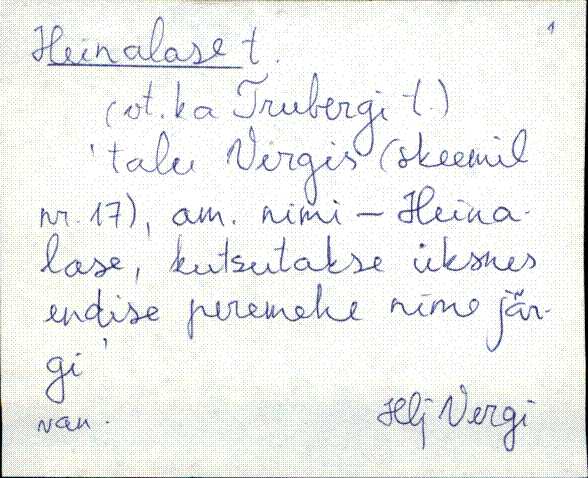 1
Heinalase t.
(vt. ka Trubergi t.)
'talu Virgis (skeemil
nr. 17), am. nimi – Heina-
lase, kutsutakse üksnes
endise peremehe nime jär-
gi'
van.
Hlj Vergi